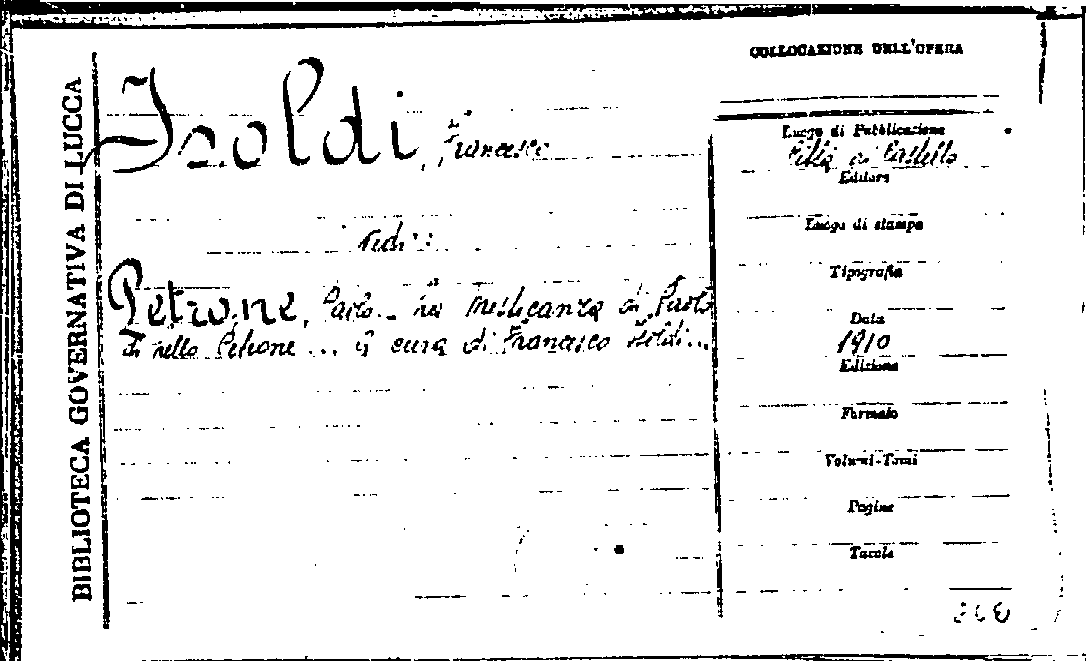 BIBLIOTECA GOVERNATIVA DI LUCCA
COLLOCAZIONE DELL'OPERA
Isoldi, Francesco
Vedi:
Petrone, Paolo.. La Mesticanza di Paolo
di nello Petrone... a cura di Francesco Isoldi...
Luogo di Pubblicazione
Città di Castello
Editore
Luogo di stampa
Tipografia
Data
1910
Edizione
Formato
Volumi-Tomi
Pagine
Tavole